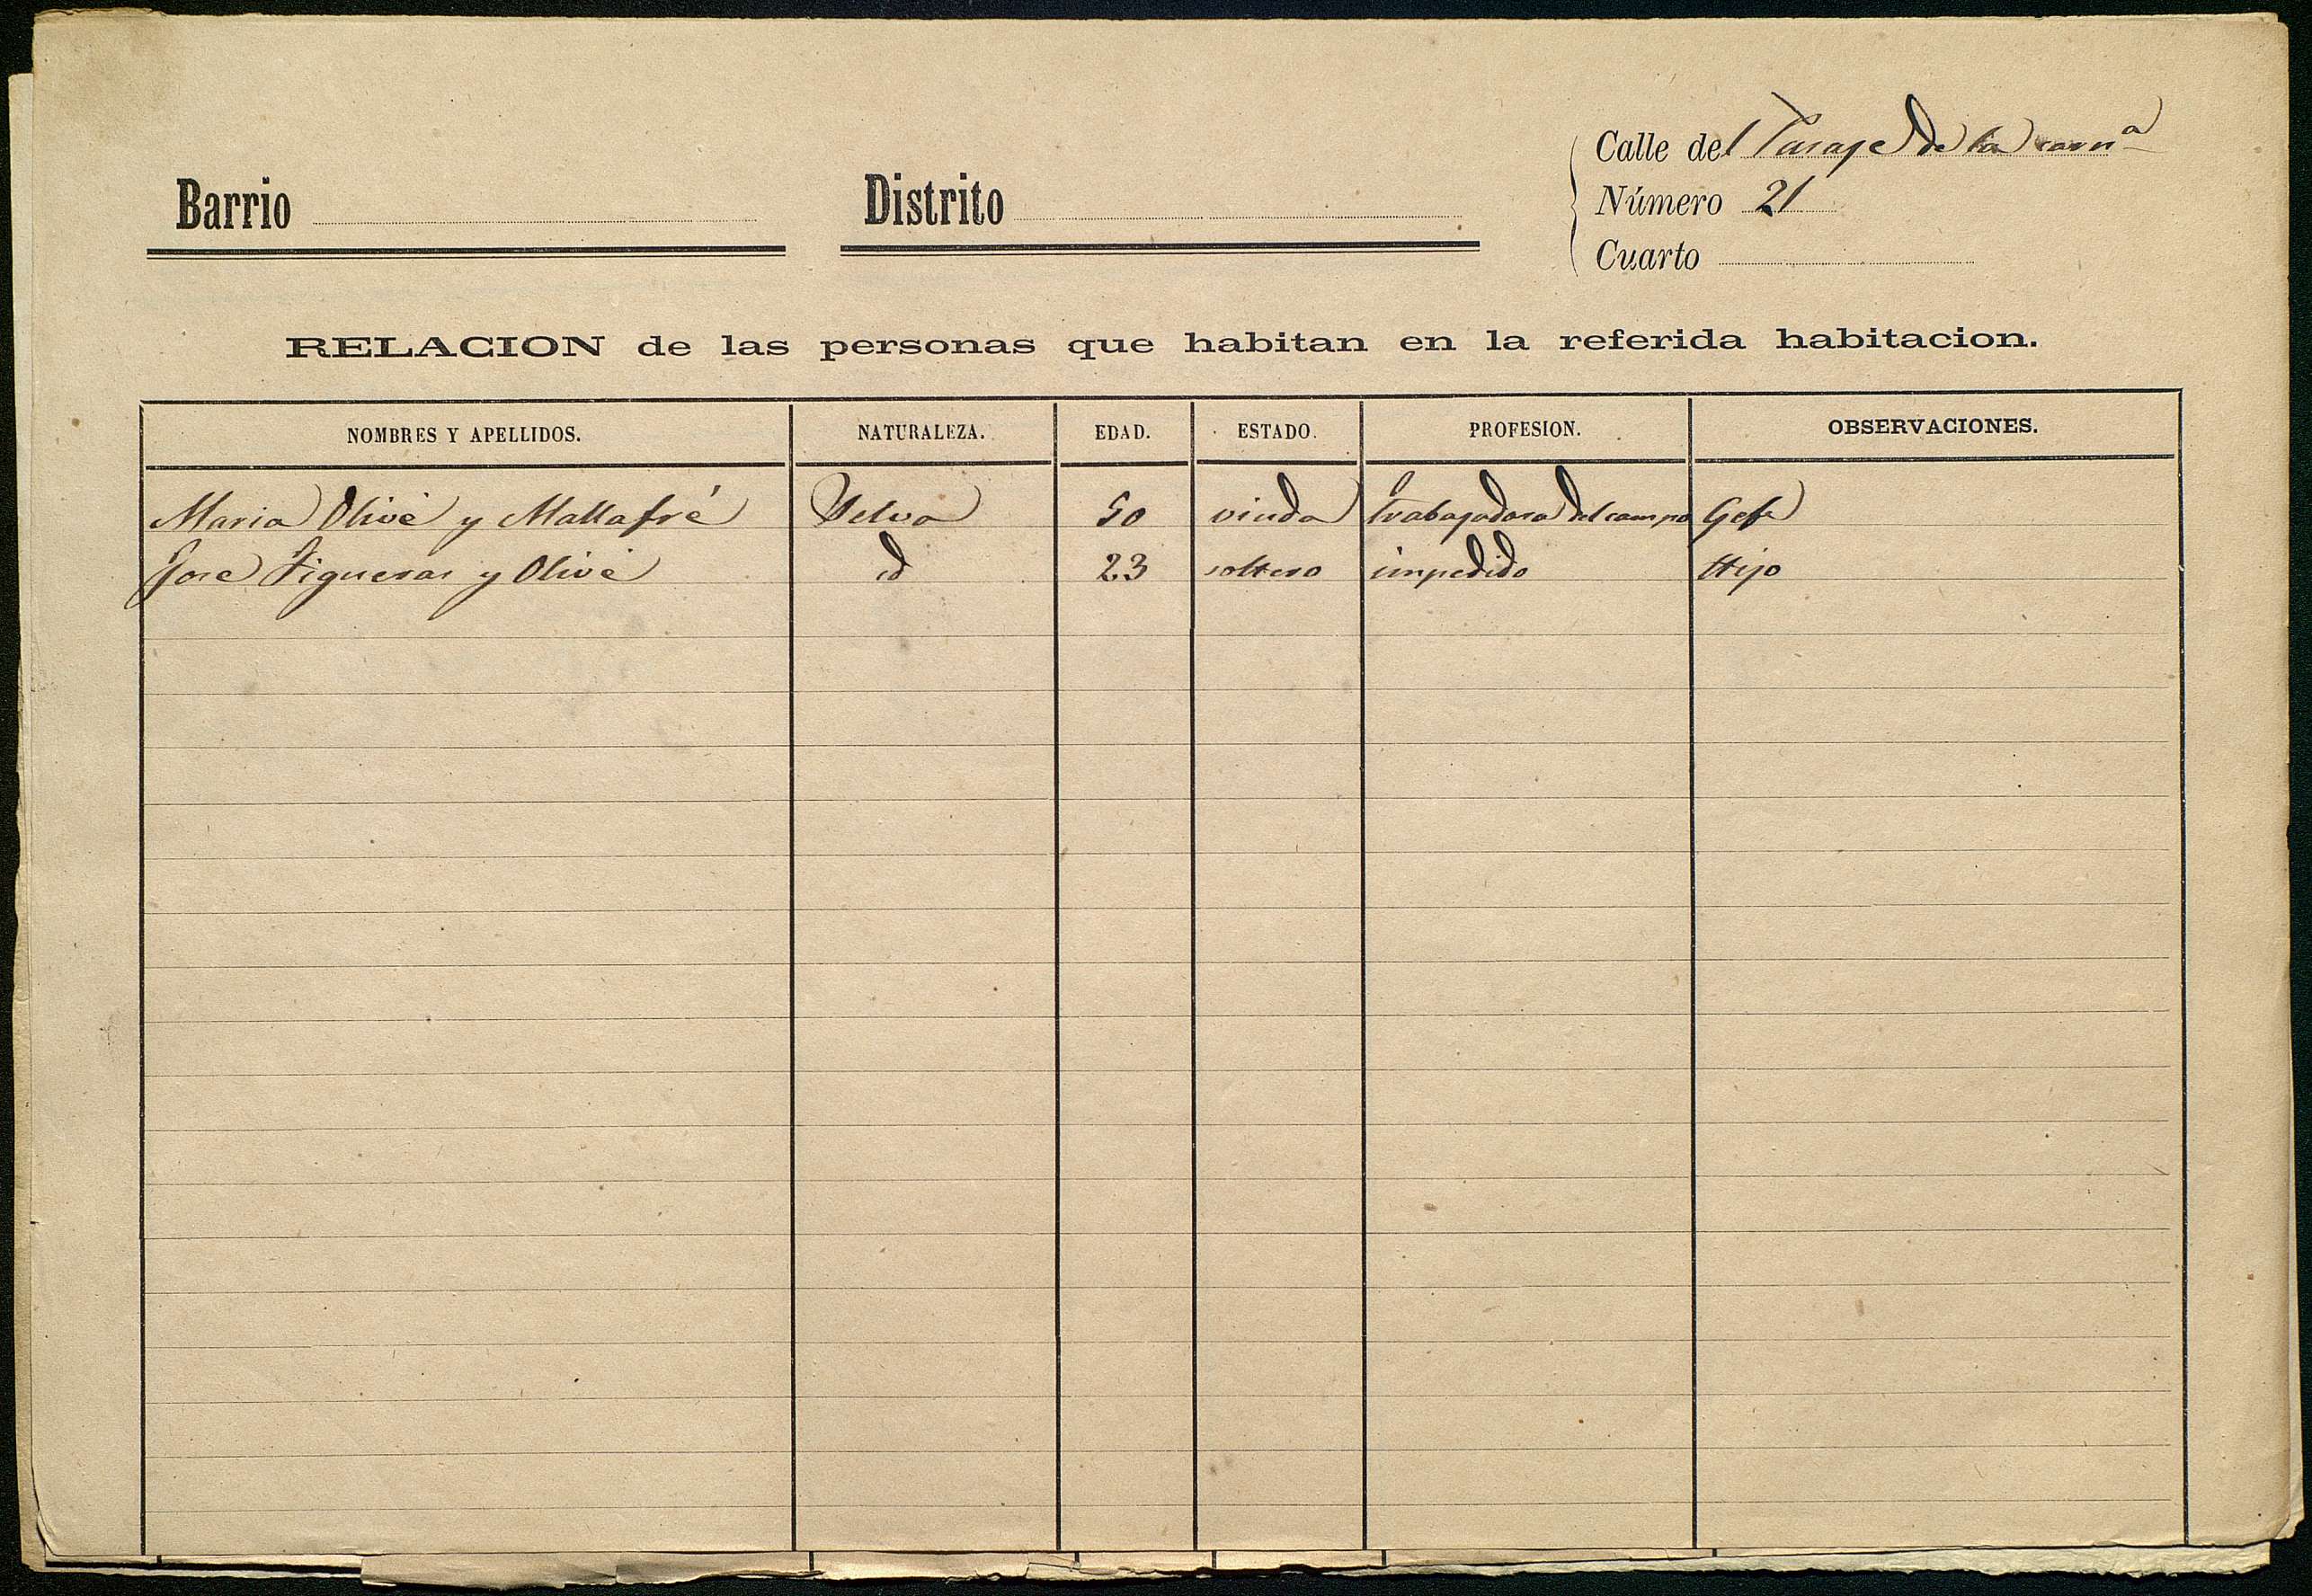 Calle del Pasage de la
Número 21
Cuarto
Barrio
Distrito
RELACION de las personas que habitan en la referida habitacion.
NOMBRES Y APELLIDOS. NATURALEZA. EDAD. ESTADO. PROFESION. OBSERVACIONES.
Maria Olivé y Mallafré Selva 50 viuda trabajadora del campo Gefe
Jose Figueras y Olivé id 23 soltero impedido Hijo